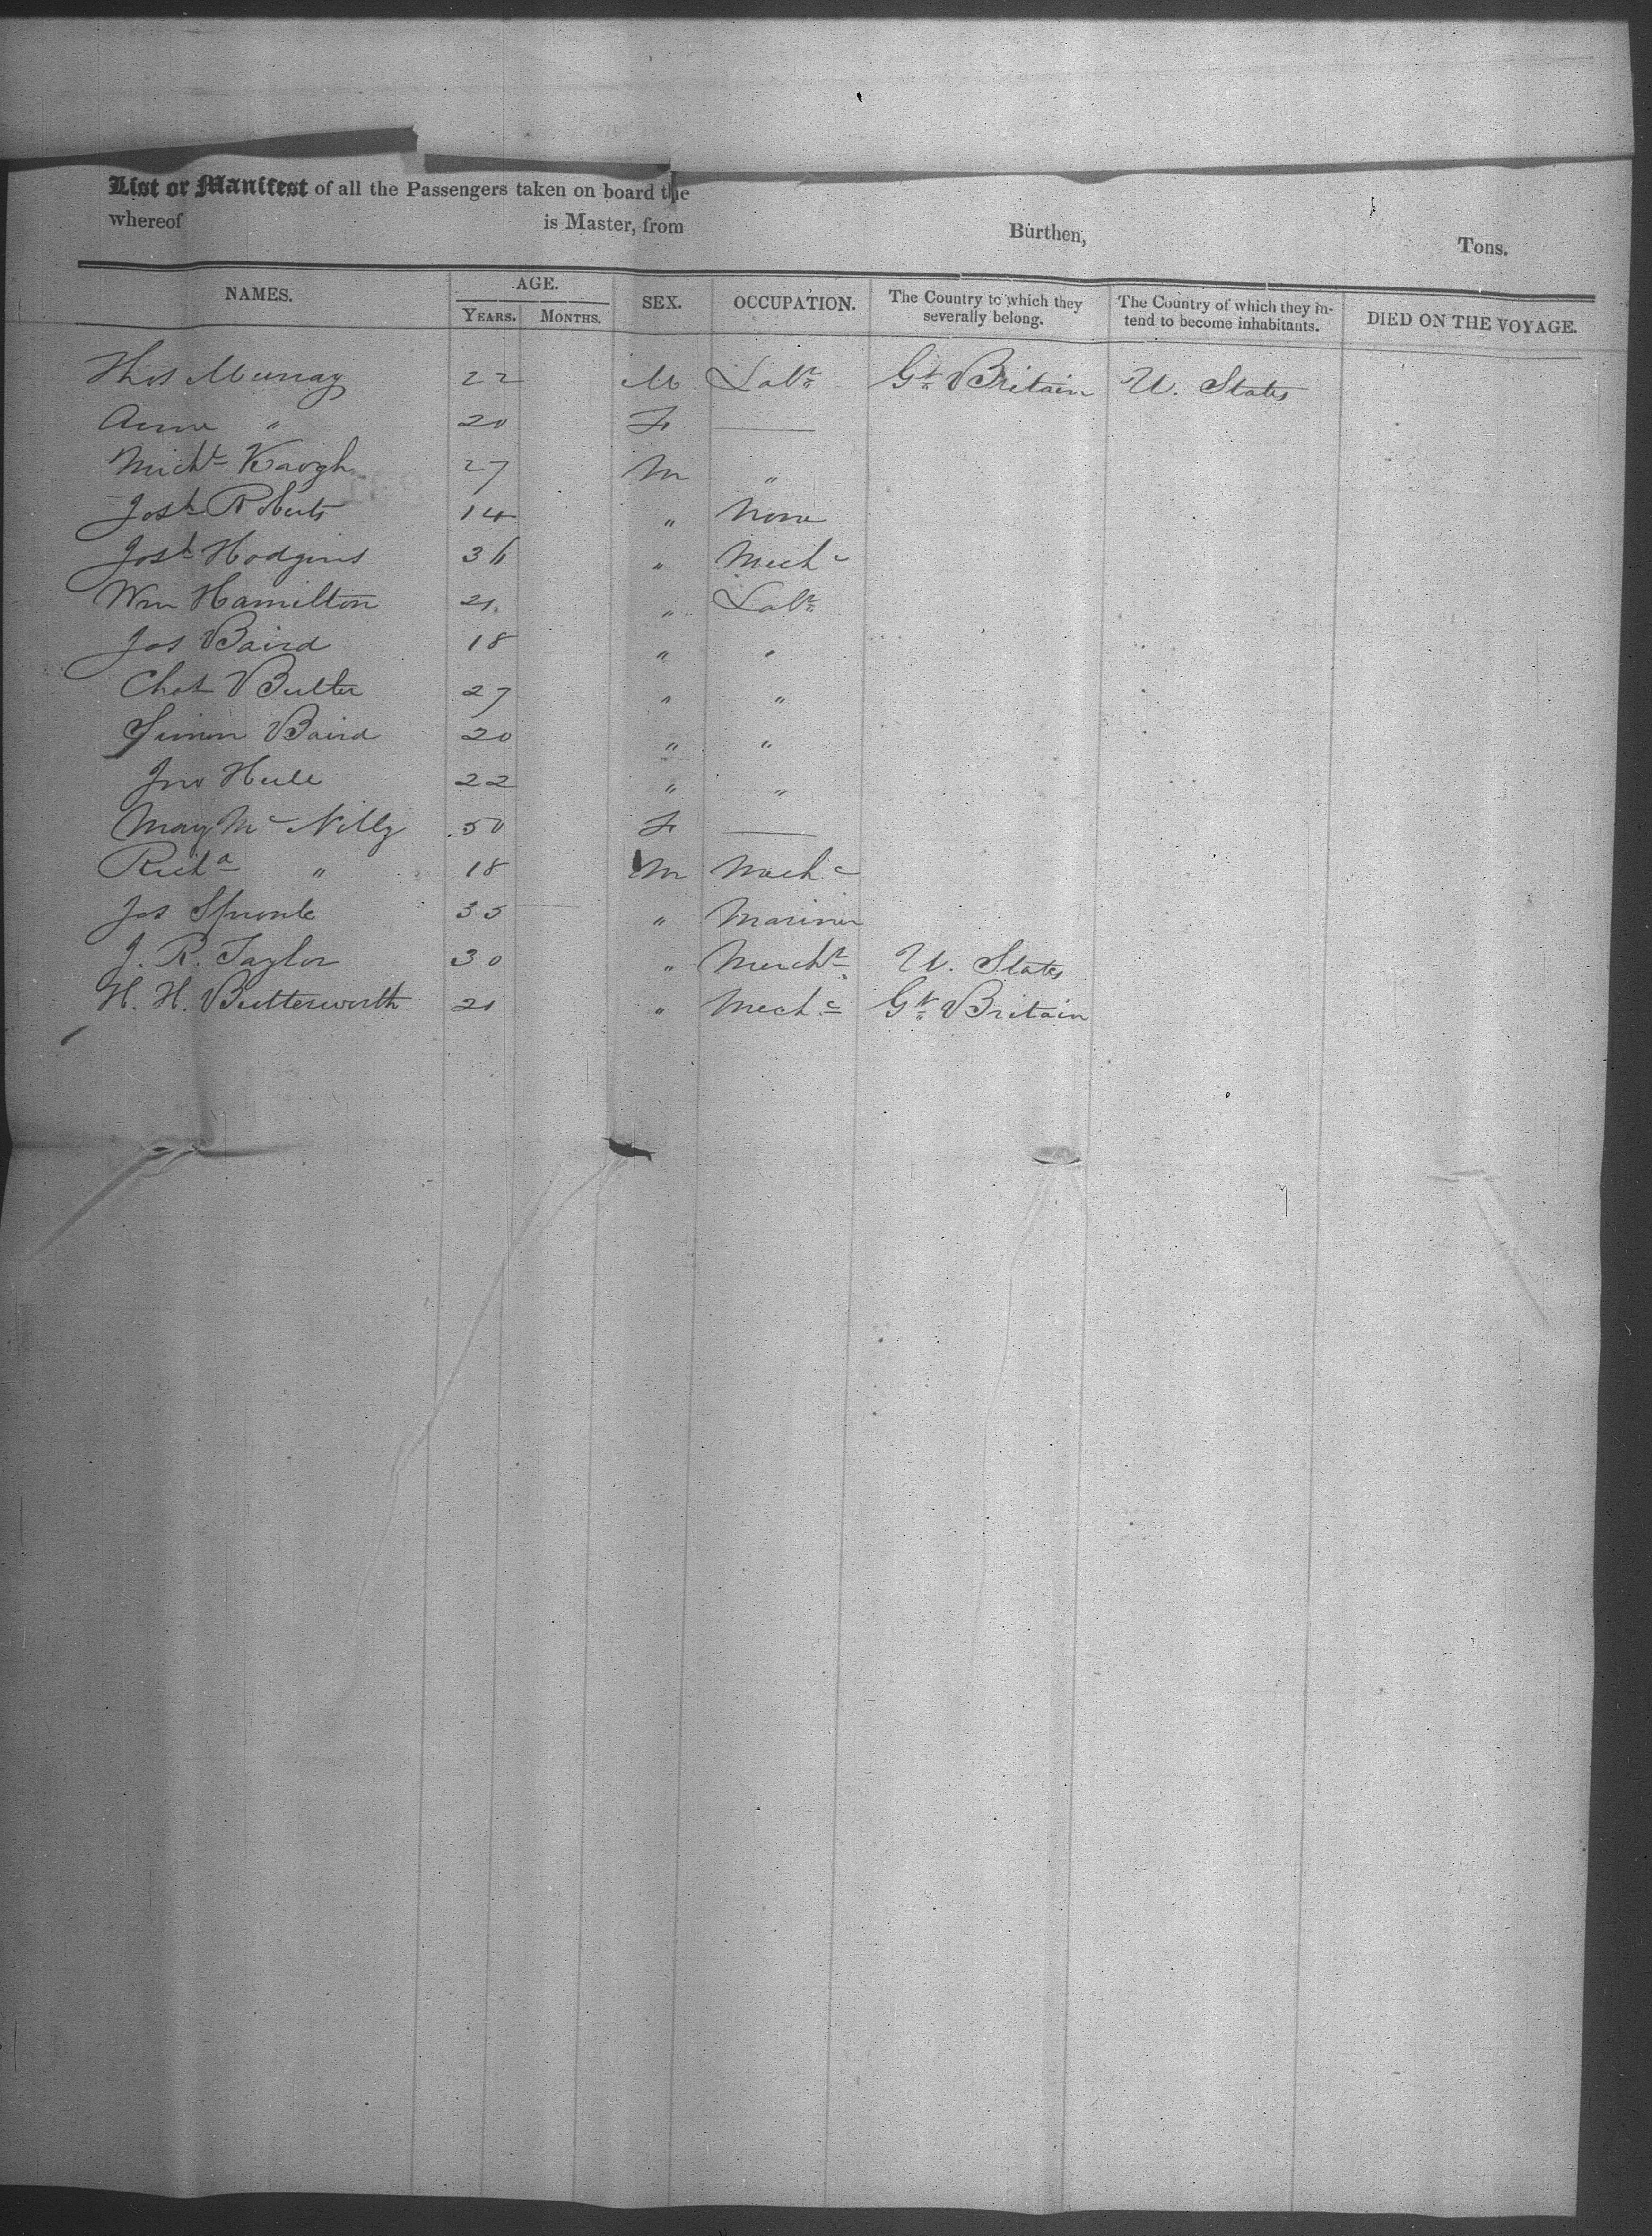 List or Manifest of all the Passengers taken on board the
whereof is Master, from Burthen, Tons.
NAMES. AGE. YEARS. MONTHS. SEX. OCCUPATION. The Country to which they severally belong. The Country of which they intend to become inhabitants. DIED ON THE VOYAGE.
Thos Murray 22 M Labr Gt Britain U. States
Anne " 20 F —
Michl Kaogh 27 M "
Josh Roberts 14 " None
Josh Hodgins 36 " Mechc
Wm Hamilton 21 " Labr
Jas Baird 18 " "
Chas Butler 27 " "
Simon Baird 20 " "
Jno Hull 22 " "
Mary Mc Nilly 50 F —
Richd " 18 M Mechc
Jas Sproule 35 " Mariner
J. R. Taylor 30 " Mercht U. States
H. H. Butterworth 21 " Mechc Gt Britain